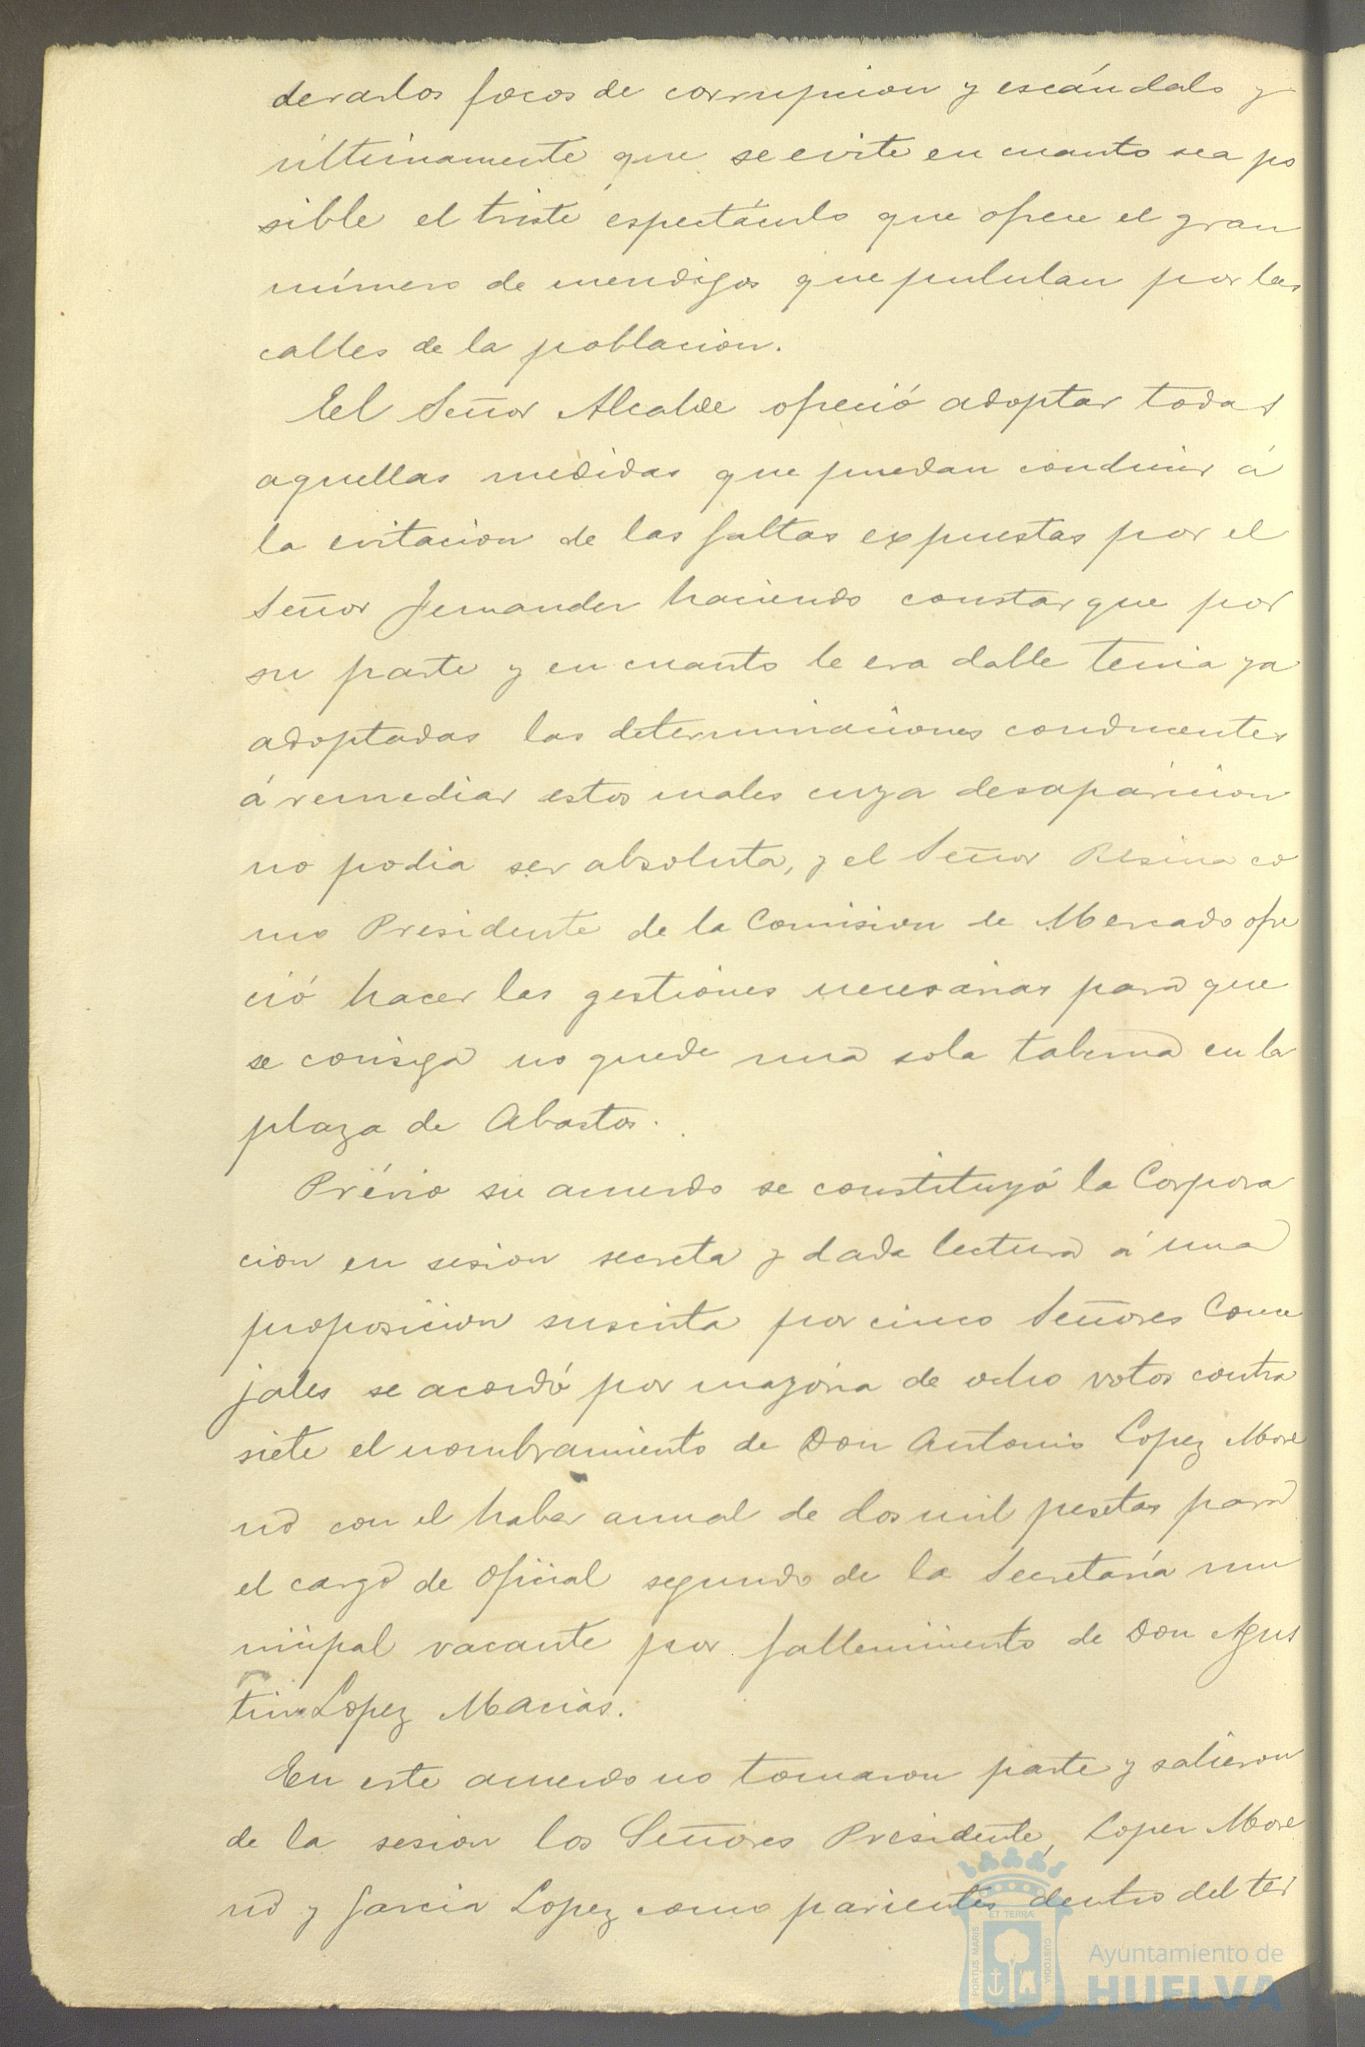 derarlos focos de corrupcion y escándalo y
últimamente que se evite en cuanto sea po
sible el triste espectáculo que ofrece el gran
número de mendigos que pululan por las
calles de la poblacion.
El Señor Alcalde ofreció adoptar todas
aquellas medidas que puedan conducir á
la evitacion de las faltas expuestas por el
Señor Fernandez haciendo constar que por
su parte y en cuanto le era dable tenia ya
adoptadas las determinaciones conducentes
á remediar estos males cuya desaparicion
no podia ser absoluta, y el Señor Resina co
mo Presidente de la Comision de Mercado ofre
ció hacer las gestiones necesarias para que
se consiga no quede una sola taberna en la
plaza de Abastos.
Prévio su acuerdo se constituyó la Corpora
cion en sesion secreta y dada lectura á una
proposicion suscrita por cinco Señores Conce
jales se acordó por mayoria de ocho votos contra
siete el nombramiento de Don Antonio Lopez More
no con el haber anual de dos mil pesetas para
el cargo de Oficial segundo de la Secretaría mu
nicipal vacante por fallecimiento de Don Agus
tin Lopez Macias.
En este acuerdo no tomaron parte y salieron
de la sesion los Señores Presidente, Lopez More
no y Garcia Lopez como parientes dentro del ter
PORTUS MARIS
ET TERRÆ
CUSTODIA
Ayuntamiento de
HUELVA